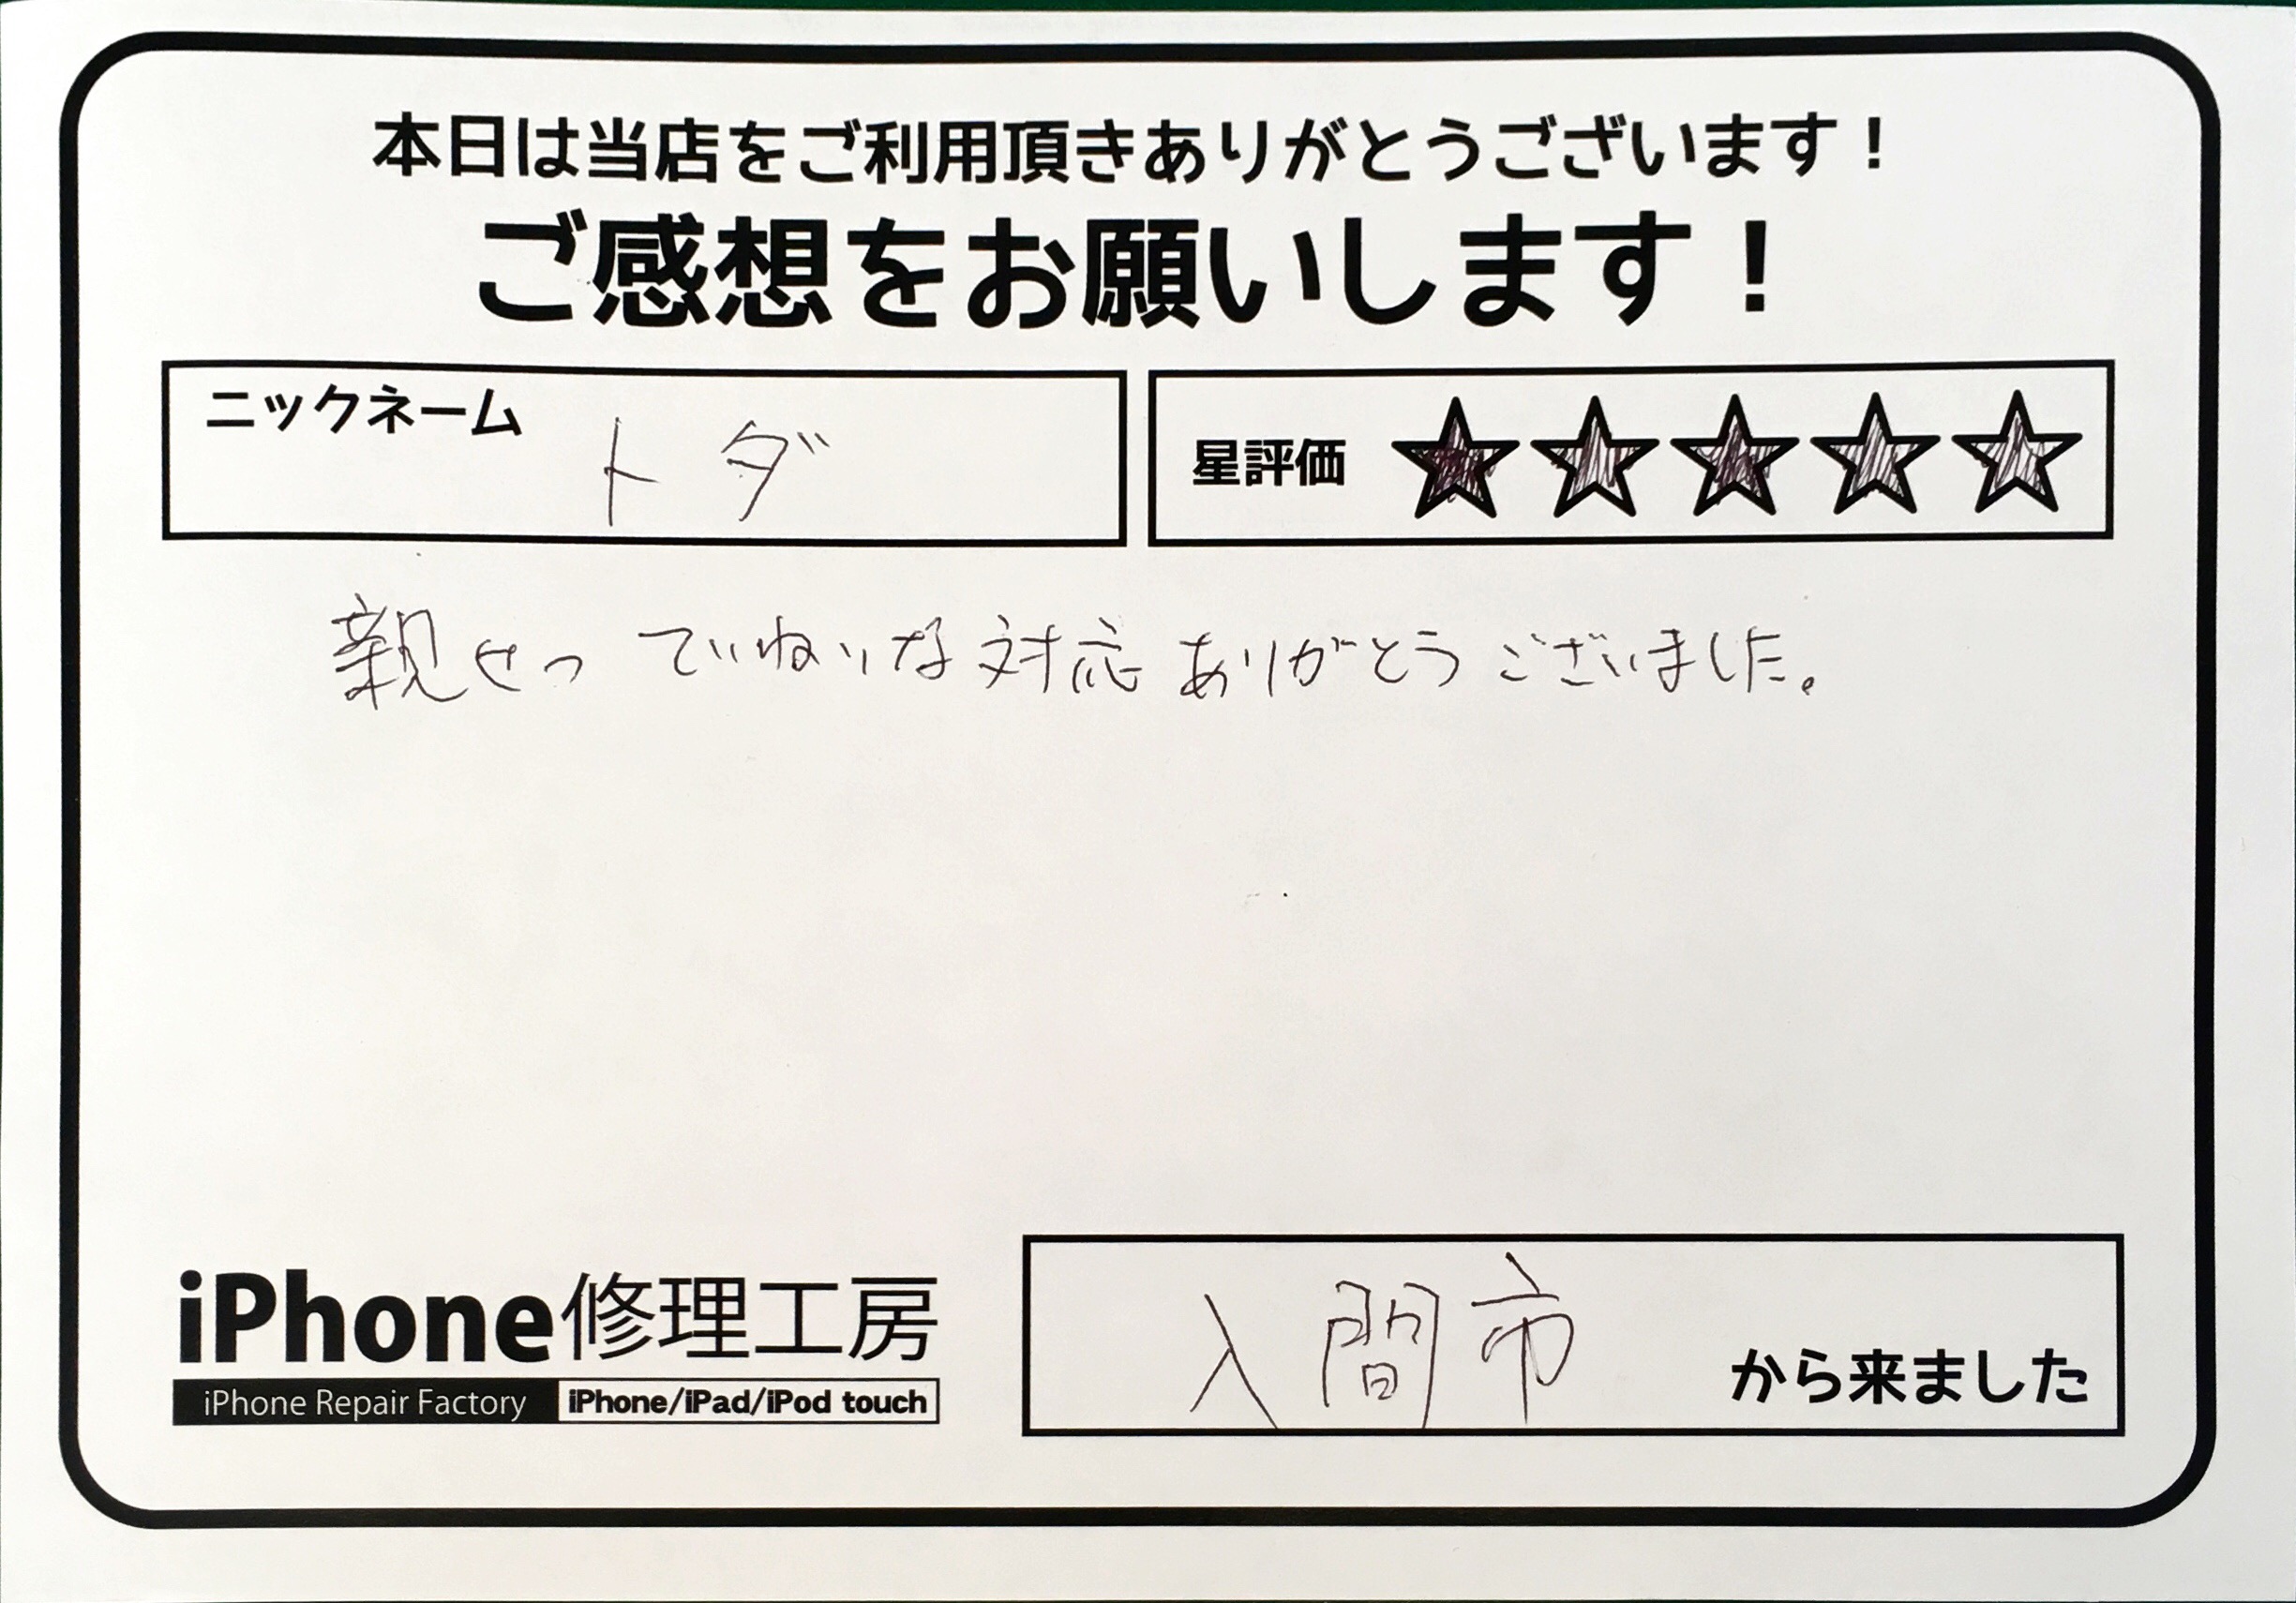 本日は当店をご利用頂きありがとうございます！
ご感想をお願いします！
ニックネーム トダ
星評価 ★★★★★
親せつ ていねいな対応 ありがとうございました。
iPhone修理工房
iPhone Repair Factory iPhone/iPad/iPod touch
入間市 から来ました